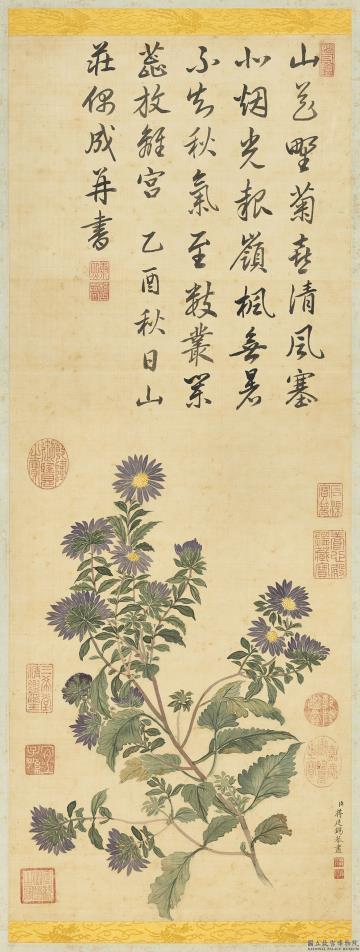 山花野菊喜清風塞
北烟光報嶺楓無暑
不知秋氣至數叢紫
蕊放離宮 乙酉秋日山
莊偶成并書
臣蔣廷錫恭畫
國立故宮博物院
NATIONAL PALACE MUSEUM